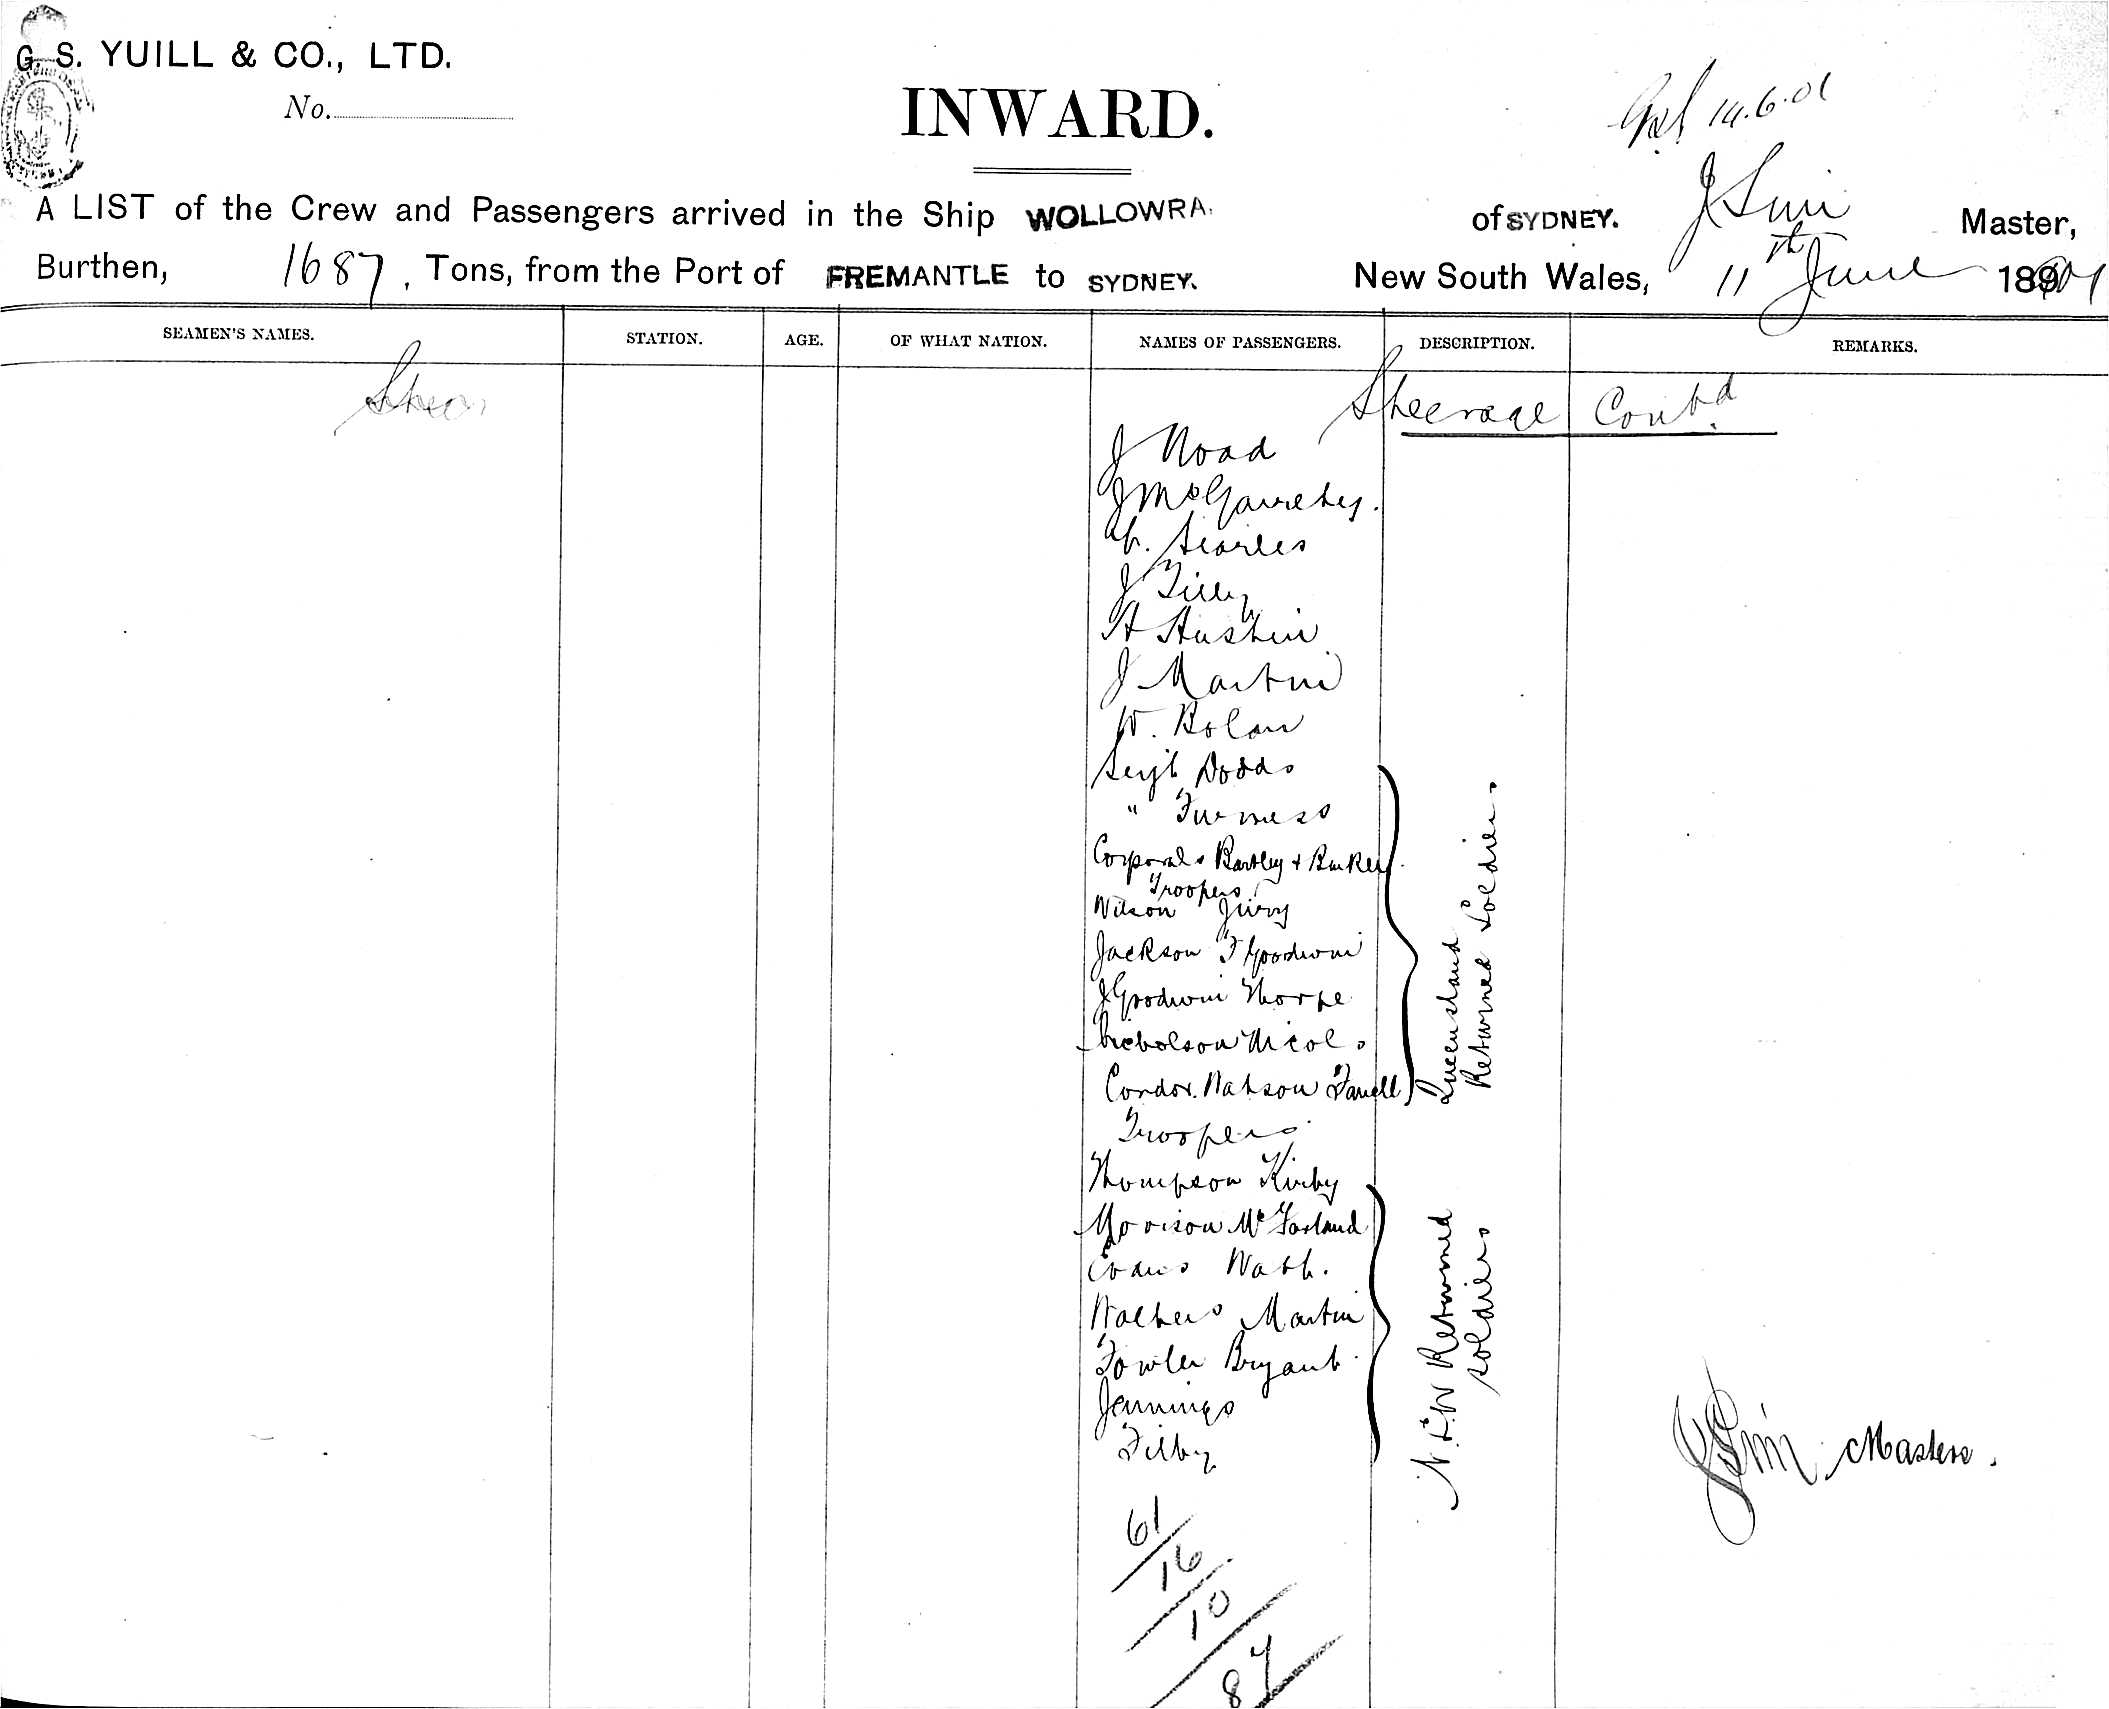 G. S. YUILL & CO., LTD.
No.
INWARD.
14.6.01
A LIST of the Crew and Passengers arrived in the Ship WOLLOWRA. of SYDNEY. J Sim Master,
Burthen, 1687. Tons, from the Port of FREMANTLE to SYDNEY. New South Wales, 11th June 1901
SEAMEN'S NAMES. STATION. AGE. OF WHAT NATION. NAMES OF PASSENGERS. DESCRIPTION. REMARKS.
Steerage Contd
J Noad
J McGarvehy.
C. Searles
J Tilly
A Austin
J Martin
W. Bolan
Sergt Dodds
" Furness
Corporals Bartley & Barker
Troopers
Wilson Jury
Jackson F Goodwin
J Goodwin Thorpe
Nicholson Nicol.
Condor. Watson Farrell
Queensland
Returned Soldiers
Troopers
Thompson Kirby
Morrison McFarland
Evans Watt.
Walters Martin
Fowler Bryant
Jennings
Tilby
N.S.W Returned
soldiers
J Sim Master.
61
16
10
87